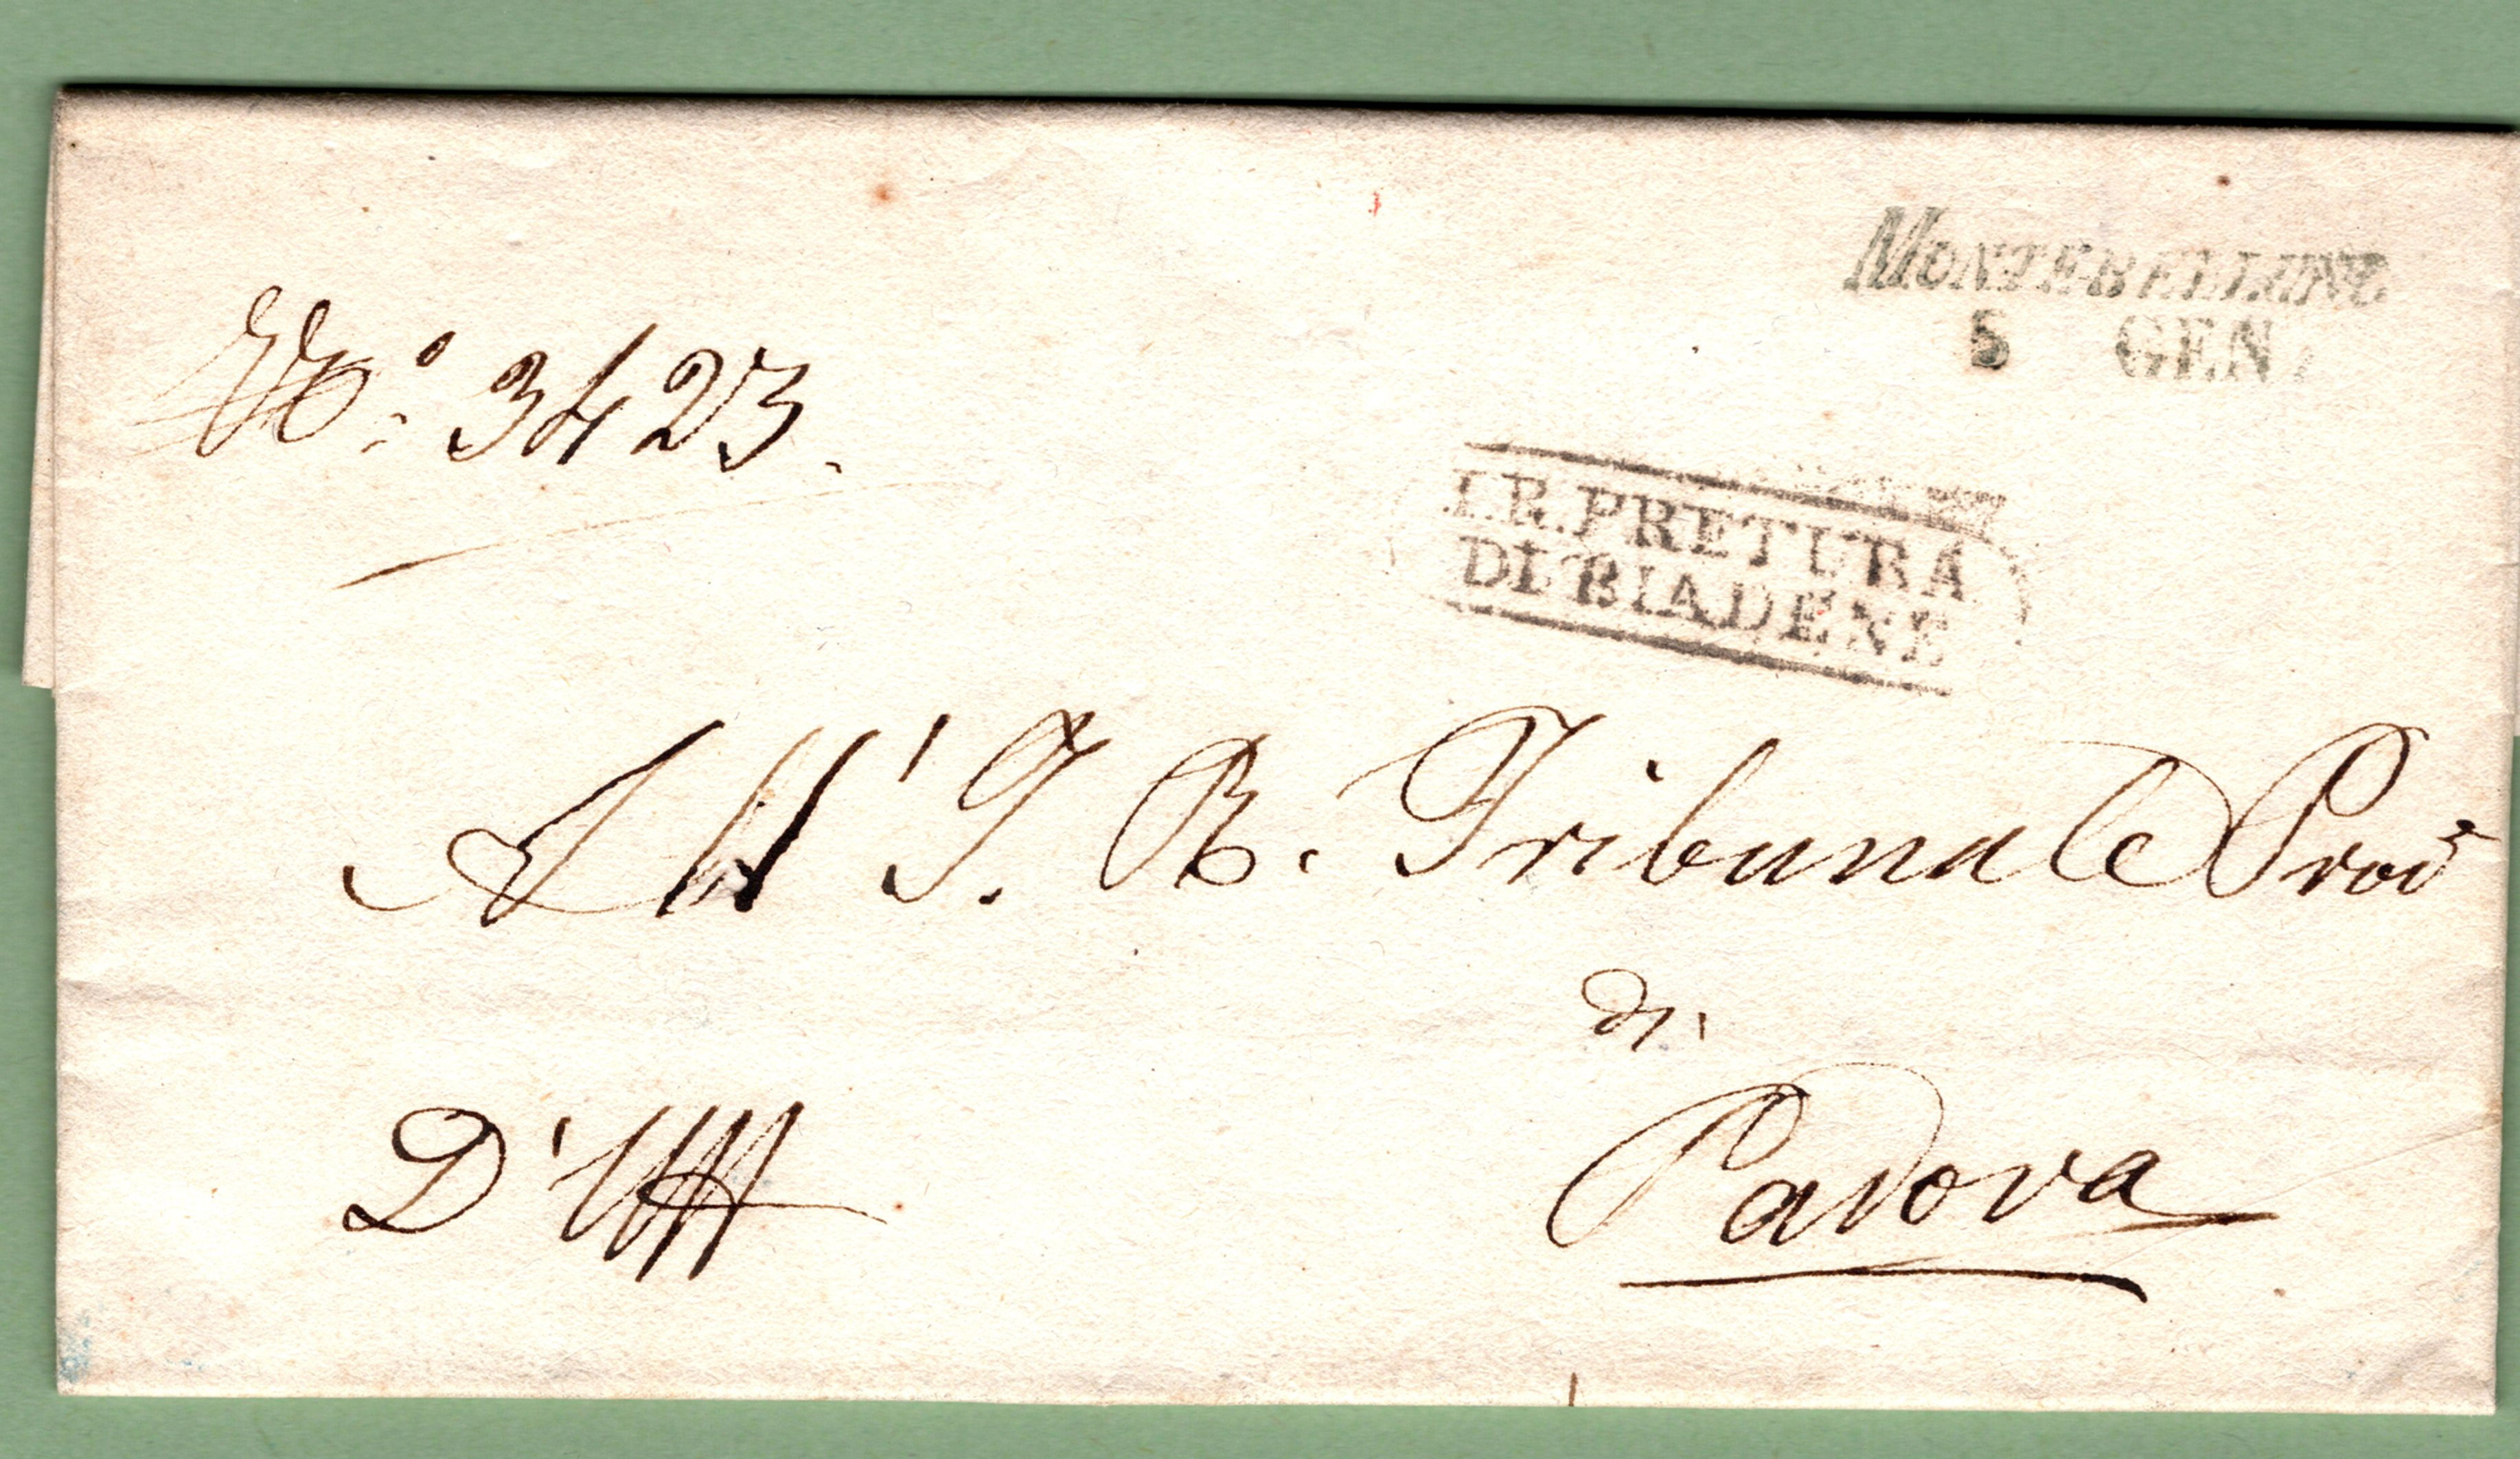 MONTEBELLUNO
N.º 3423.
5 GEN.
I.R.PRETURA
DI BIADENE
All' I. R. Tribunale Prov.e
di
D'Uff
Padova